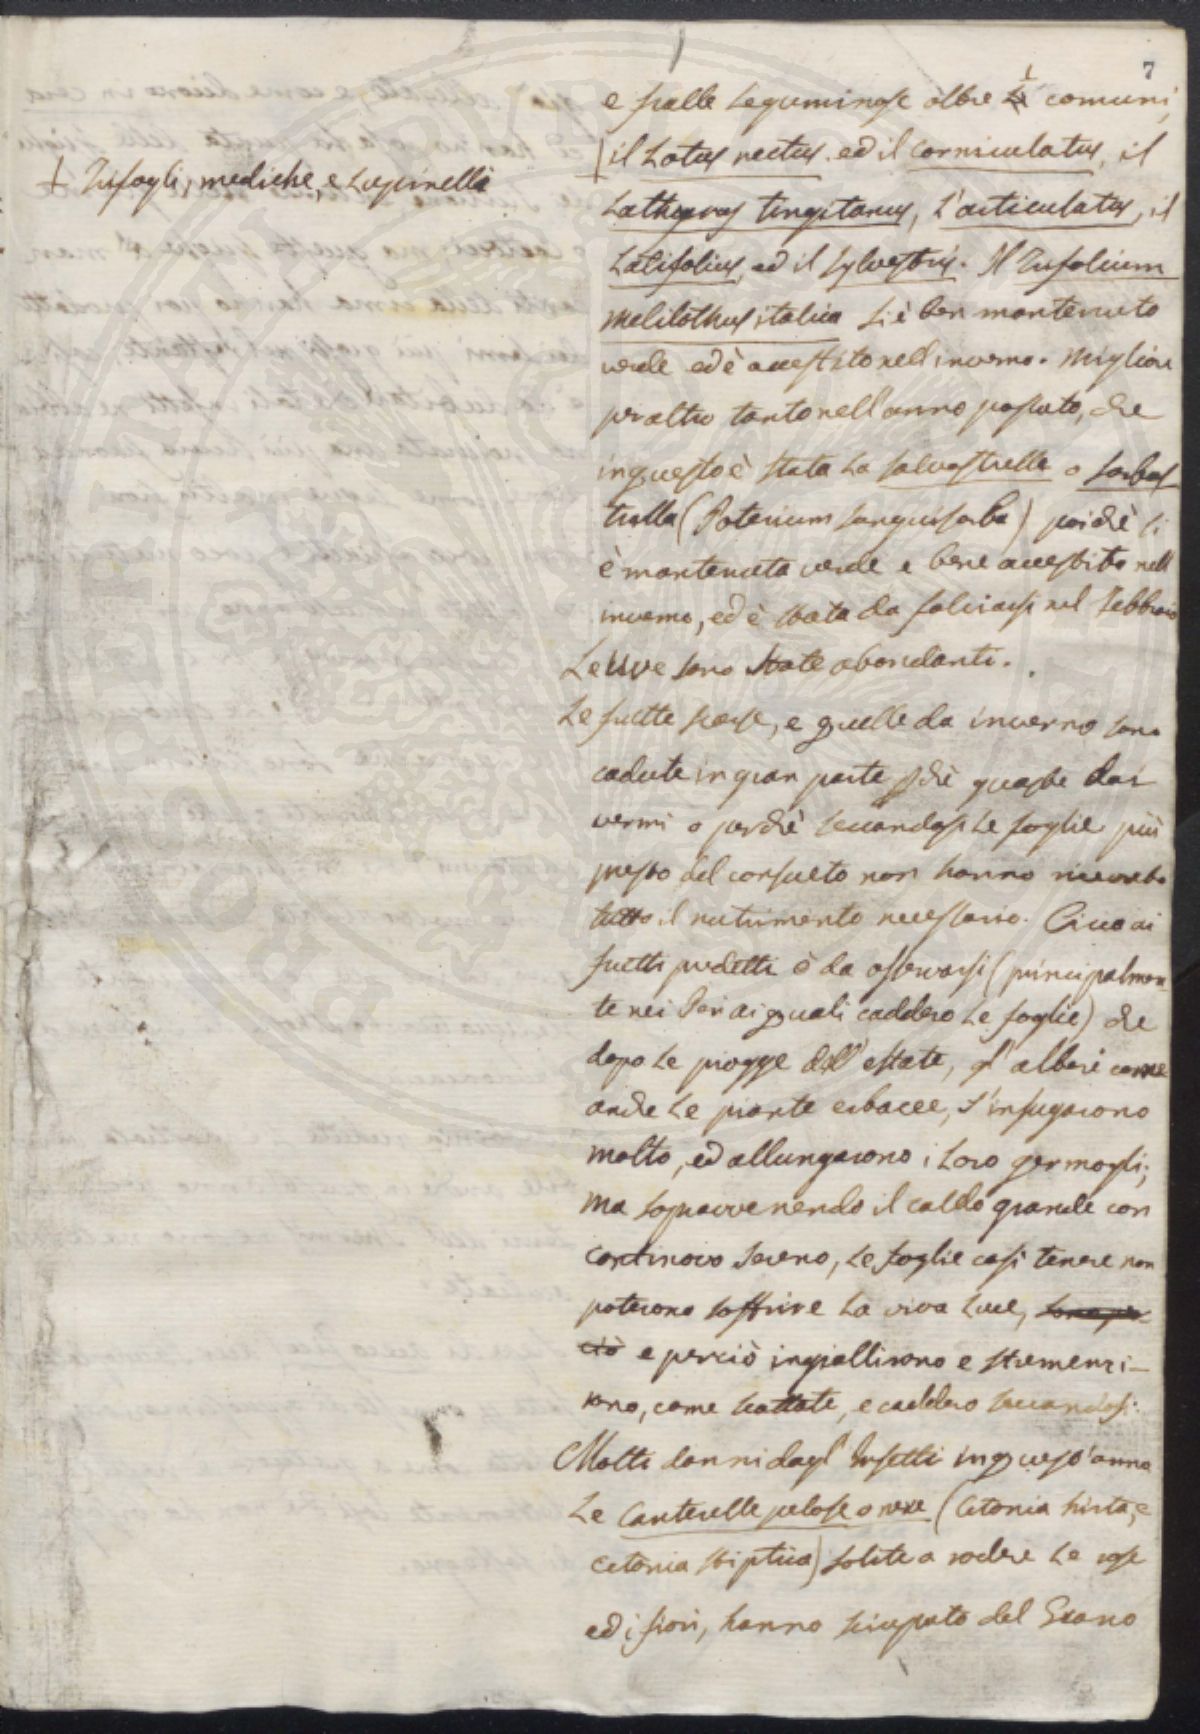 7
e fralle Leguminose oltre i comuni
ɫ Trifogli, mediche, e Lupinella
il Lotus rectus ed il corniculatus, il
Lathyrus tingitanus, L'articulatus, il
Latifolius, ed il Sylvestris. Il Trifolium
Melilothus italica si è ben mantenuto
verde ed è accestito nell inverno. Migliore
per altro tanto nell'anno passato, che
in questo è stata La Salvastrella o Sorbas
trella (Poterium Sanguisorba) poichè si
è mantenuta verde e bene accestita nell
inverno, ed è stata da falciarsi nel Febbraio
Le Uve sono state abondanti.
Le frutte scarse, e quelle da inverno sono
cadute in gran parte pchè guaste dai
vermi o perchè seccandosi Le foglie più
presto del consueto non hanno ricevuto
tutto il nutrimento necessario. Circa ai
frutti predetti è da osservarsi (principalmen-
te nei Peri ai quali caddero Le foglie) che
dopo Le piogge dell' estate, gl' alberi come
anche Le piante erbacee, s'infugarono
molto, ed allungarono i Loro germogli;
ma sopravvenendo il caldo grande con
continovo Sereno, Le foglie così tenere non
poterono soffrire La viva Luce, sono per
ciò e perciò ingiallirono e stremenzi-
rono, come scottate, e caddero seccandosi.
Molti danni dagl' Insetti in quest'anno
Le Canterelle pelose o nere (Cetonia hirta, e
Cetonia stiptica) solite a rodere Le rose
ed i fiori, hanno sciupato del Grano